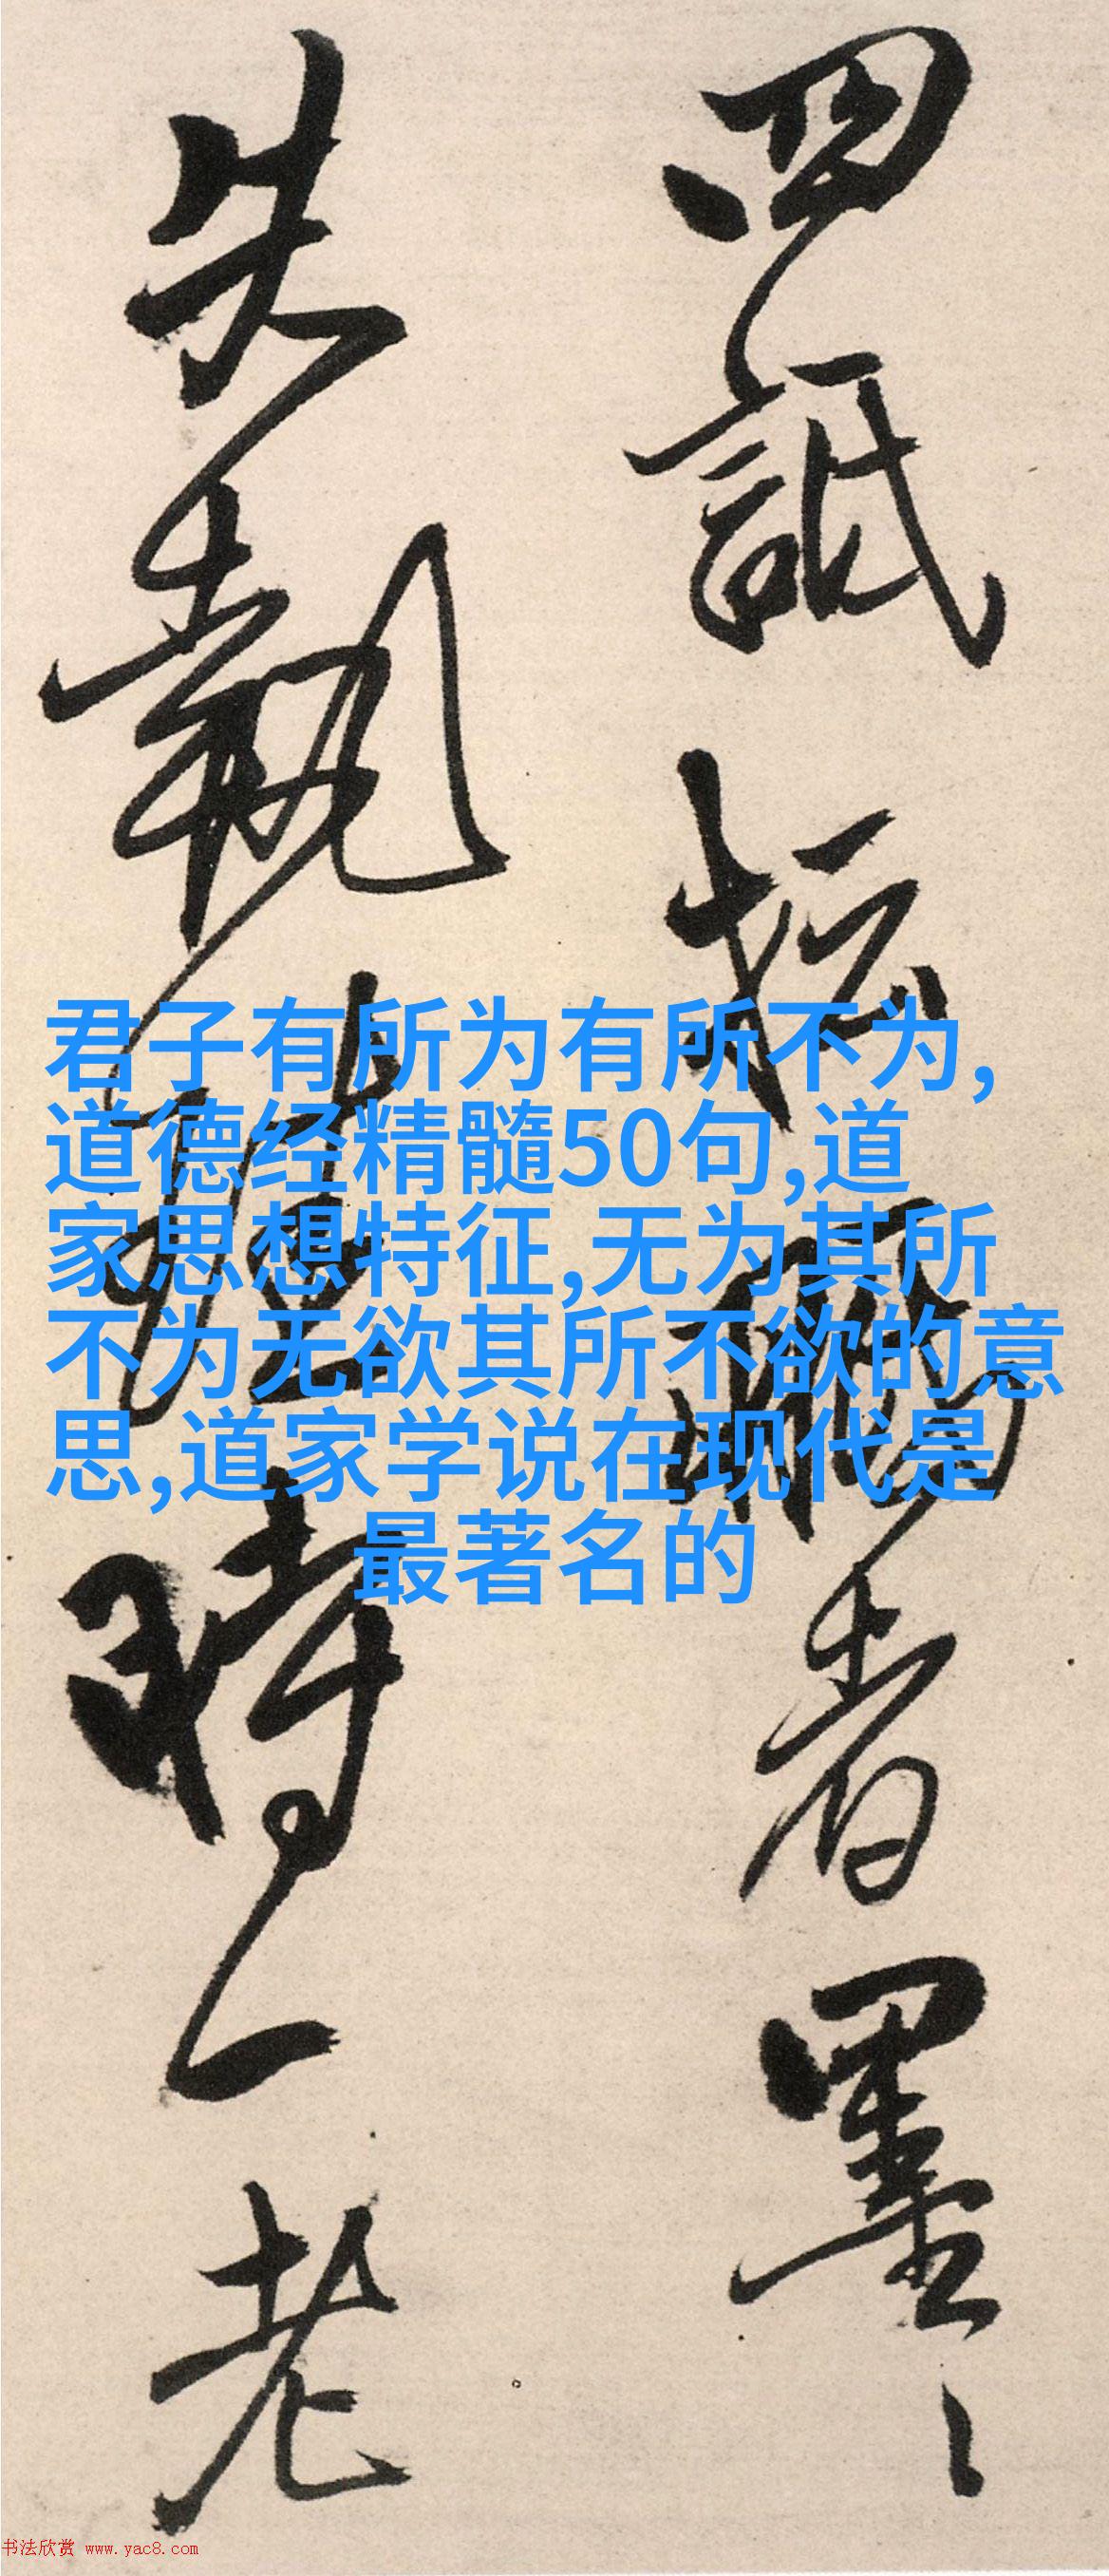 四詆桓彌者墨
失執憚時一老
君子有所为有所不为,
道德经精髓50句,道
家思想特征,无为其所
不为无欲其所不欲的意
思,道家学说在现代是
最著名的
书法欣赏 www.yac8.com